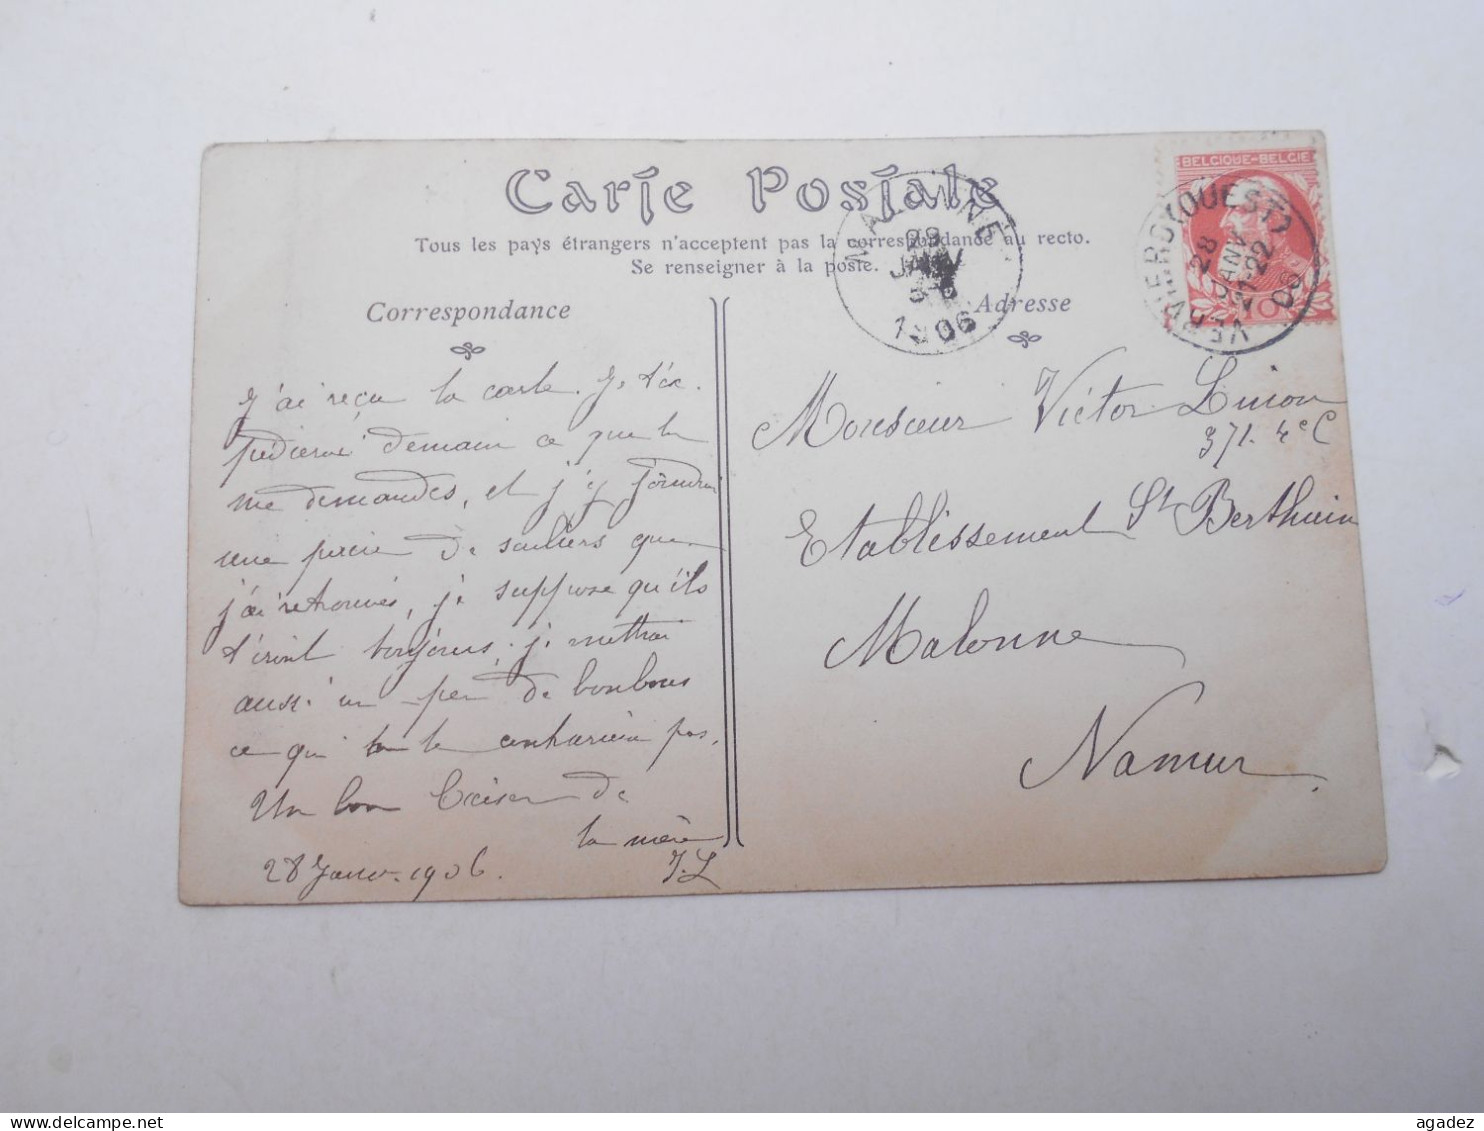 Carte Postale
Tous les pays étrangers n'acceptent pas la correspondance au recto.
Se renseigner à la poste.
Correspondance
J'ai reçu ta carte. Je t'ex-
pédierai demain ce que tu
me demandes, et j'y joindrai
une paire de souliers que
j'ai retrouvés, je suppose qu'ils
t'iront toujours, je mettrai
aussi un peu de bonbons
ce qui te contrariera pas.
Un bon baiser de
ta mère
28 Janv. 1906. J. L
Adresse
Monsieur Victor
371. 4e C
Etablissement St Berthuin
Malonne
Namur
MALONNE
29
JANV
1906
BELGIQUE-BELGIE
10
VERVIERS (OUEST)
28
JANV
21-22
06
agadez